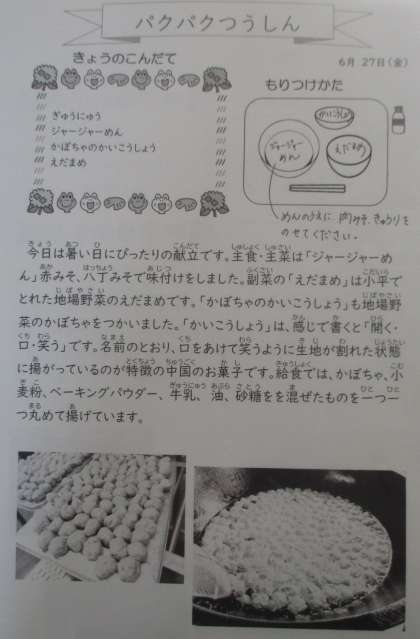 パクパクつうしん
きょうのこんだて
6月 27日(金)
ぎゅうにゅう
ジャージャーめん
かぼちゃのかいこうしょう
えだまめ
もりつけかた
かいこうしょう
ジャージャー
めん
えだまめ
めんのうえに、肉みそ、きゅうりを
のせてください。
今日は暑い日にぴったりの献立です。主食・主菜は「ジャージーめ
ん」赤みそ、八丁みそで味付けをしました。副菜の「えだまめ」は小平で
とれた地場野菜のえだまめです。「かぼちゃのかいこうしょう」も地場野
菜のかぼちゃをつかいました。「かいこうしょう」は、感じで書くと「開く・
口・笑う」です。名前のとおり、口をあけて笑うように生地が割れた状態
に揚がっているのが特徴の中国のお菓子です。給食では、かぼちゃ、小
麦粉、ベーキングパウダー、牛乳、油、砂糖をを混ぜたものを一つ一
つ丸めて揚げています。